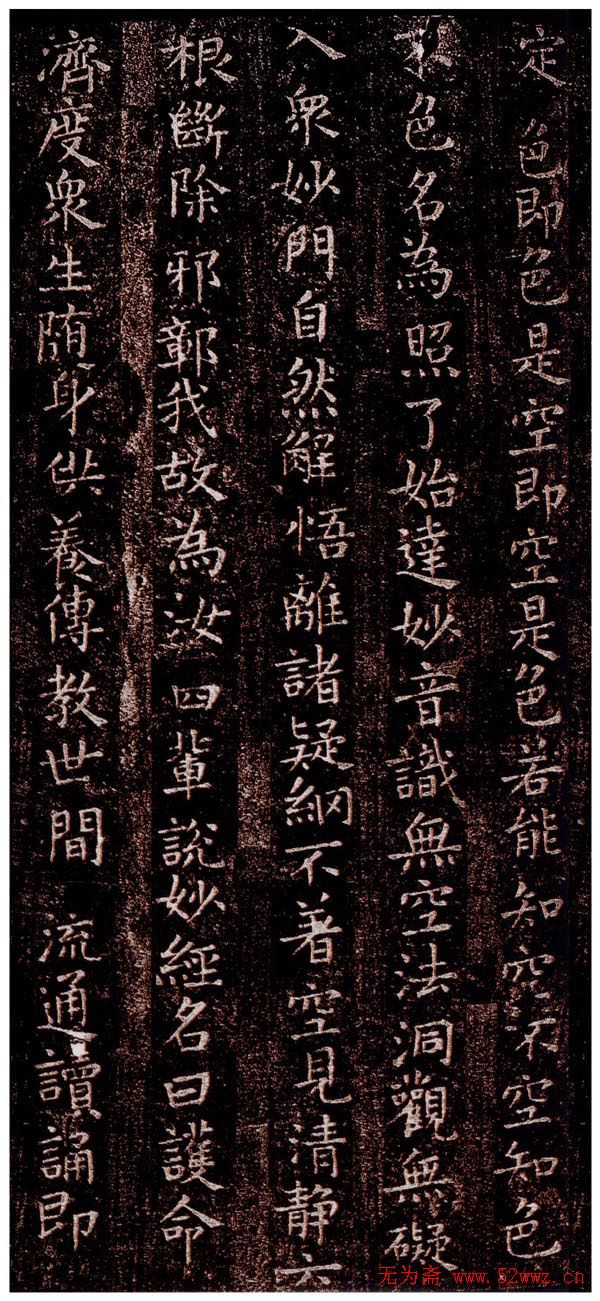 定色即色是空即空是色若能知空不空知色
不色名為照了始達妙音識無空法洞觀無礙
入衆妙門自然解悟離諸疑網不著空見清靜六
根斷除邪鄣我故為汝四輩說妙經名曰護命
濟度衆生随身供養傳教世間流通讀誦即
无为斋 www.52wwz.cn